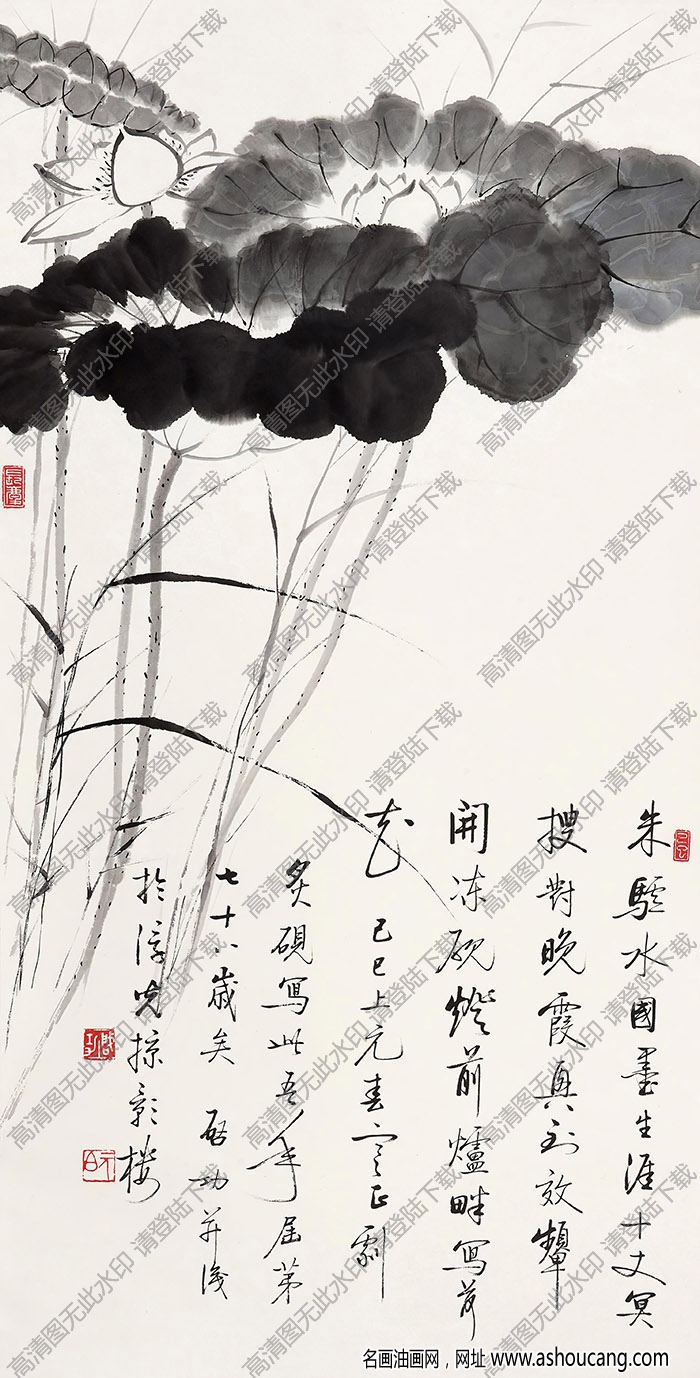 朱驢水國墨生涯十丈冥
搜對晚霞真到效顰
開凍硯燈前爐畔寫荷
花 己巳上元春寒正劇
炙硯寫此吾年屆第
七十八歲矣 啓功并識
於浮光掠影楼
高清图无此水印 请登陆下载
名画油画网，网址 www.ashoucang.com